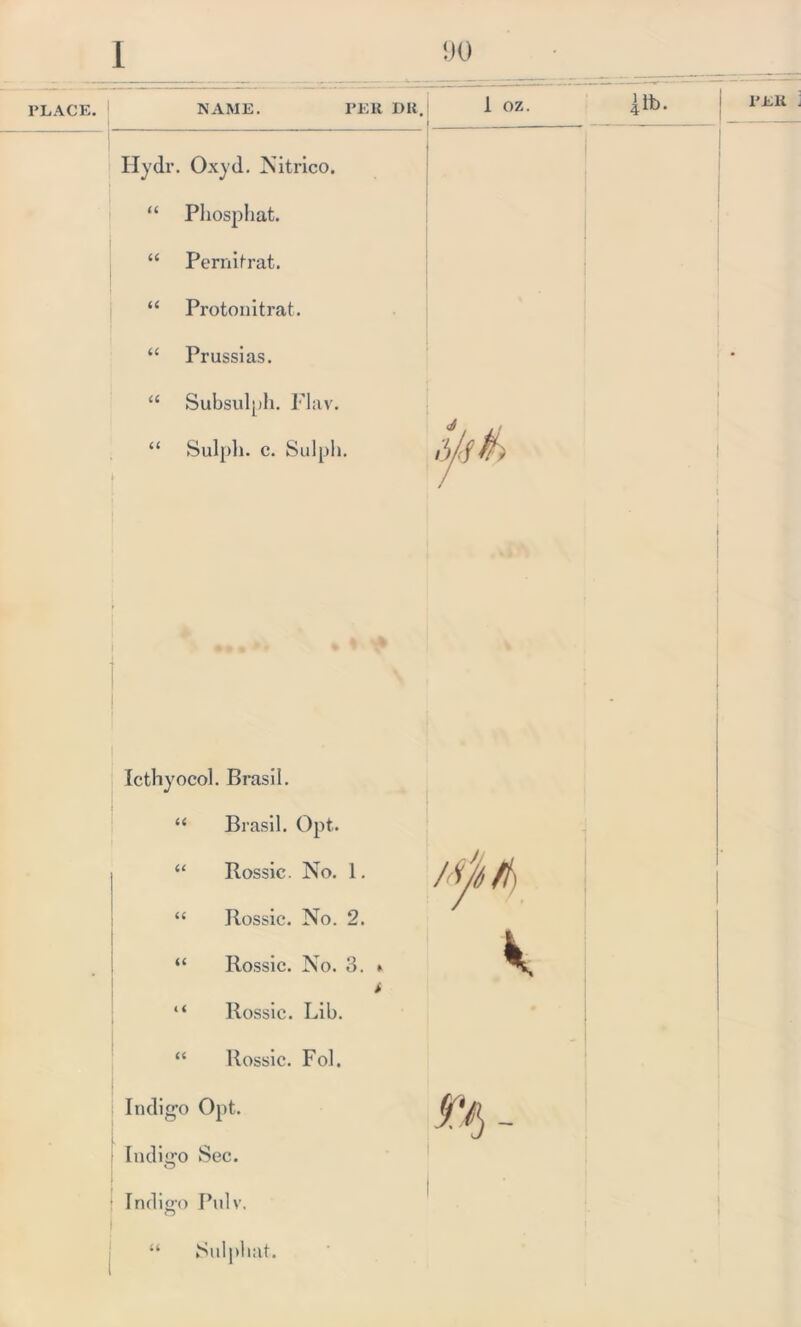 I 90
PLACE. NAME. PER DR. 1 oz. ¼ lb. PER
Hydr. Oxyd. Nitrico.
“ Phosphat.
“ Pernitrat.
“ Protonitrat.
“ Prussias.
“ Subsulph. Flav.
“ Sulph. c. Sulph.
Icthyocol. Brasil.
“ Brasil. Opt.
“ Rossic. No. 1.
“ Rossic. No. 2.
“ Rossic. No. 3.
“ Rossic. Lib.
“ Rossic. Fol.
Indigo Opt.
Indigo Sec.
Indigo Pulv.
“ Sulphat.